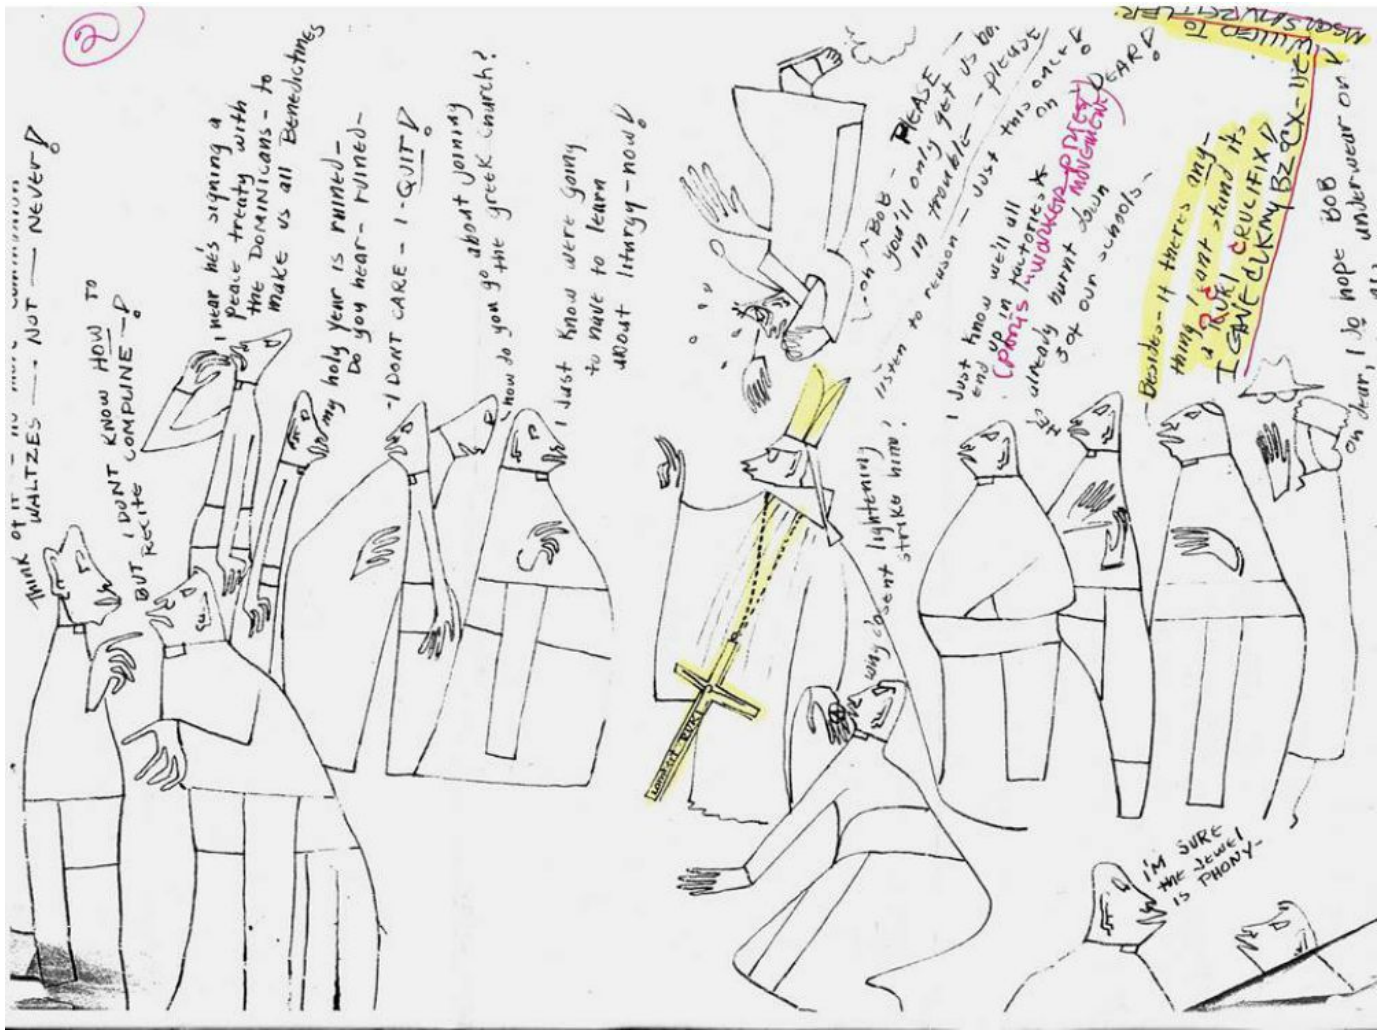 2
THINK OF IT - NO MORE COMMUNION
WALTZES - - NOT - NEVER!
I DONT KNOW HOW TO
BUT RECITE COMPLINE -!
I hear he's signing a
peace treaty with
the DOMINICANS - to
make us all Benedictines
my holy year is RUINED -
Do you hear - ruined -
-I DONT CARE - I-QUIT!
how do you go about joining
the greek church?
I Just Know were going
to have to learn
about liturgy - now!
ooh ~ BOB - PLEASE -
you'll only get us both
in trouble - please
listen to reason - Just this once!
why doesent lightening
strike him?
London RUKI
I Just Know we'll all
end up in factories*
(PARIS WORKER PRIEST
MOVEMENT)
on DEAR!
HE'S already burnt down
3 of our schools -
Besides - if theres any-
thing I cant stand its
a RUKI CRUCIFIX!!
I GAVE
WILLED TO
oh dear, I do hope BOB
underwear on!
I'M SURE
the Jewel
IS PHONY-